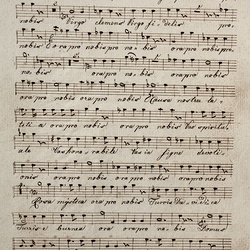 nobis Virgo clemens Virgo fidelis pro
nobis ora pro nobis pro nobis ora pro nobis pro
nobis ora pro nobis
nobis ora pro nobis ora pro nobis Causa nostrae lae
titiae ora pro nobis ora pro nobis Vas spiritu
ale Vas honorabile Vas insigne devoti
onis ora pro nobis ora pro nobis ora pro nobis
Rosa mystica ora pro nobis Turris Davidica
Turris eburnea ora pro nobis Domus